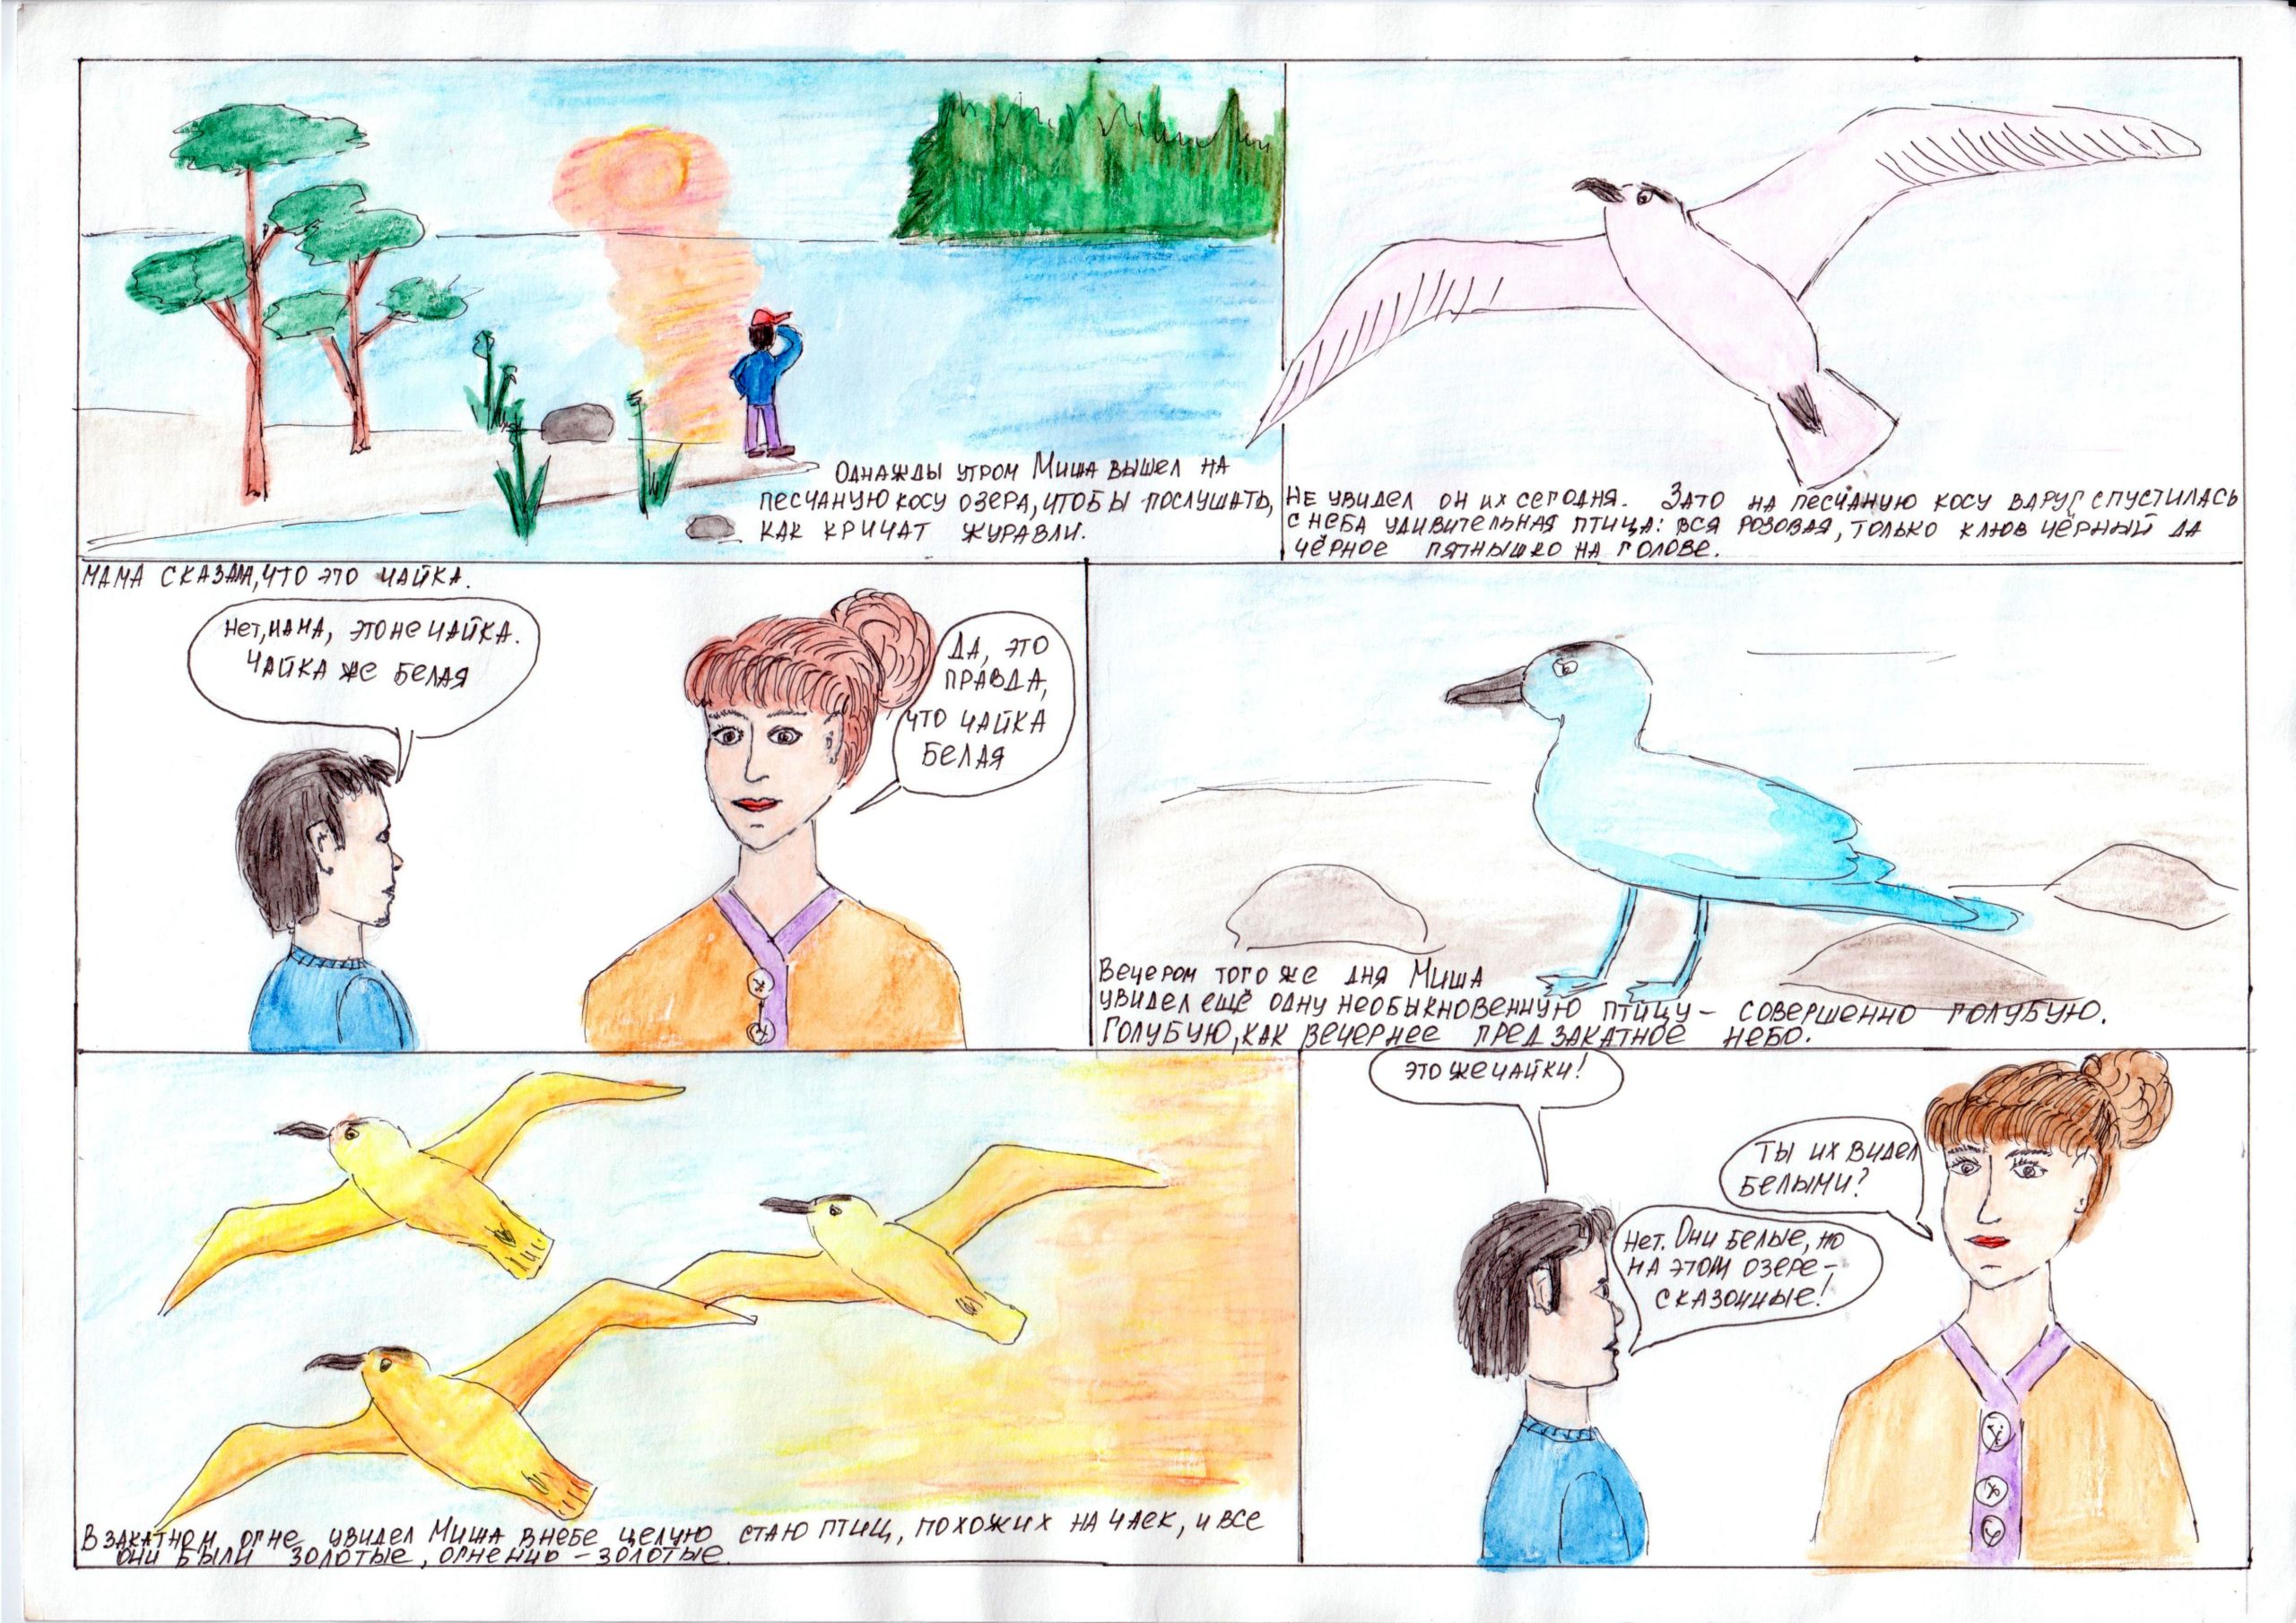 Однажды утром Миша вышел на
песчаную косу озера, чтобы послушать,
как кричат журавли.
Не увидел он их сегодня. Зато на песчаную косу вдруг спустилась
с неба удивительная птица: вся розовая, только клюв чёрный да
чёрное пятнышко на голове.
Мама сказала, что это чайка.
Нет, мама, это не чайка.
Чайка же белая
Да, это
правда,
что чайка
белая
Вечером того же дня Миша
увидел ещё одну необыкновенную птицу – совершенно голубую.
Голубую, как вечернее предзакатное небо.
В закатном огне увидел Миша в небе целую стаю птиц, похожих на чаек, и все
они были золотые, огненно-золотые.
Это же чайки!
Ты их видел
белыми?
Нет. Они белые, но
на этом озере –
сказочные!